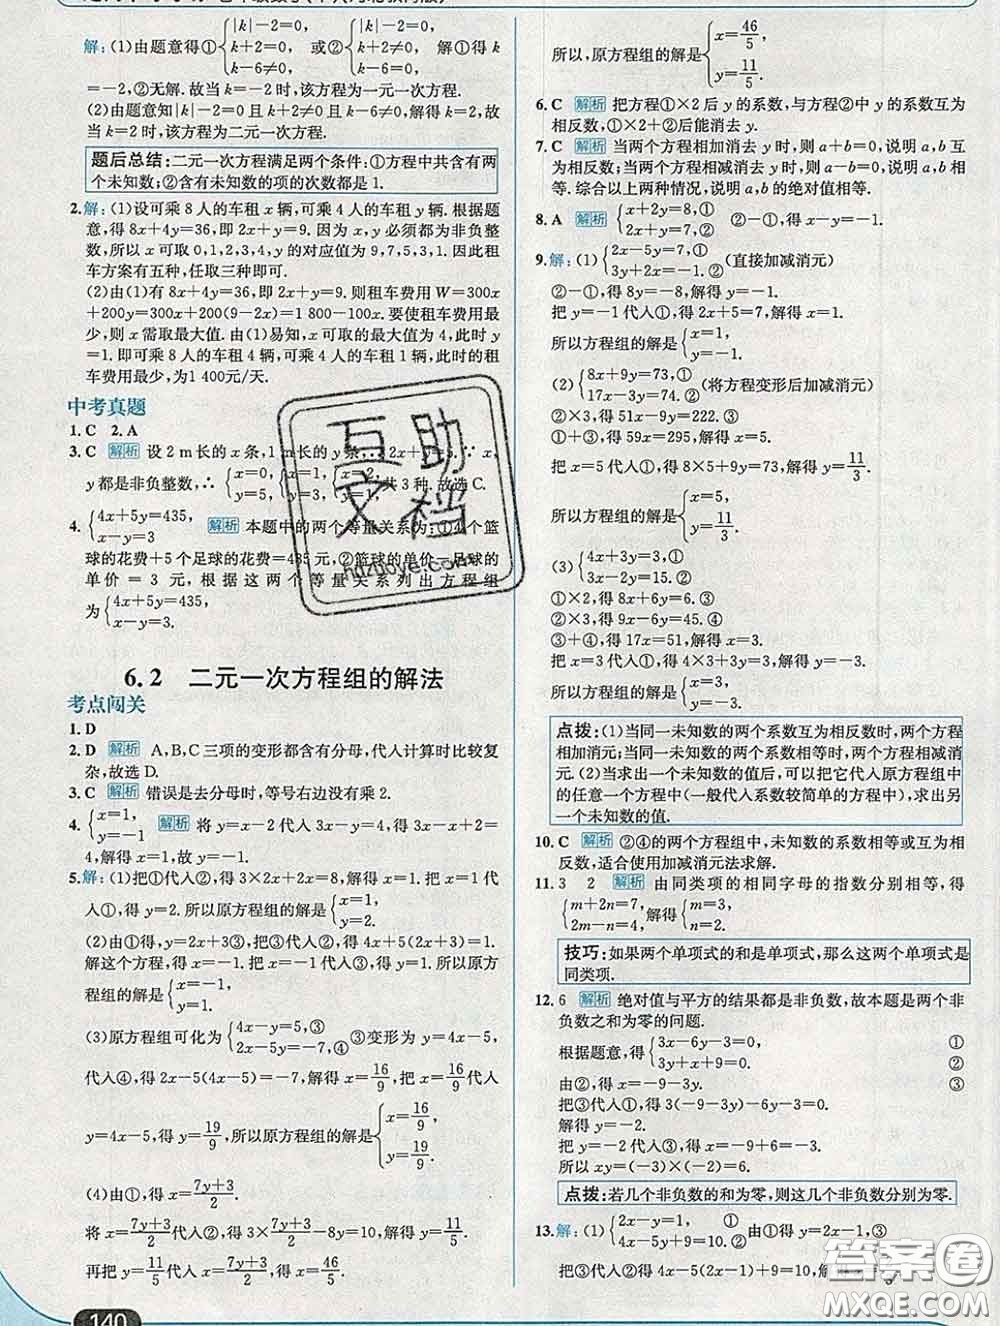 解:(1)由题意得①{|k|-2=0, k+2=0, k-6≠0, 或②{|k|-2=0, k+2≠0, k-6=0. 解①得k
=-2,②无解.故当k=-2时,该方程为一元一次方程.
(2)由题意知|k|-2=0且k+2≠0且k-6≠0,解得k=2.故
当k=2时,该方程为二元一次方程.
题后总结:二元一次方程满足两个条件:①方程中共含有两
个未知数;②含有未知数的项的次数都是1.
2.解:(1)设可乘8人的车租x辆,可乘4人的车租y辆.根据题
意,得8x+4y=36,即2x+y=9.因为x,y必须都为非负整
数,所以x可取0,1,2,3,4,y的对应值为9,7,5,3,1.因此租
车方案有五种,任取三种即可.
(2)由(1)有8x+4y=36,即2x+y=9.则租车费用W=300x
+200y=300x+200(9-2x)=1 800-100x.要使租车费用最
少,则x需取最大值.由(1)易知,x可取的最大值为4,此时y
=1.即可乘8人的车租4辆,可乘4人的车租1辆,此时的租
车费用最少,为1 400元/天.
中考真题
1.C 2.A
3.C 解析 设2 m长的x条,1 m长的y条,2x+y=5.∵x,
y都是非负整数,∴{x=0, y=5, {x=1, y=3, {x=2, y=1. 共3种.故选C.
4.{4x+5y=435, x-y=3. 解析 本题中的两个等量关系为:①4个篮
球的花费+5个足球的花费=435元,②篮球的单价-足球的
单价=3元,根据这两个等量关系列出方程组
为{4x+5y=435, x-y=3.
6.2 二元一次方程组的解法
考点闯关
1.D
2.D 解析 A,B,C三项的变形都含有分母,代入计算时比较复
杂,故选D.
3.C 解析 错误是去分母时,等号右边没有乘2.
4.{x=1, y=-1 解析 将y=x-2代入3x-y=4,得3x-x+2=
4,解得x=1,故y=-1.
5.解:(1)把①代入②,得3×2x+2x=8,解得x=1.把x=1代
入①,得y=2.所以原方程组的解是{x=1, y=2.
(2)由①得,y=2x+3③,把③代入②,得4x+5(2x+3)=1.
解这个方程,得x=-1.把x=-1代入③,得y=1.所以原方
程组的解是{x=-1, y=1.
(3)原方程组可化为{4x-y=5,③ 2x-5y=-7,④ ③变形为y=4x-5,
代入④,得2x-5(4x-5)=-7,解得x=16/9,把x=16/9代入
y=4x-5,得y=19/9,所以原方程组的解是{x=16/9, y=19/9.
(4)由①,得x=(7y+3)/2.
将x=(7y+3)/2代入②,得3×(7y+3)/2-8y=10,解得y=11/5.
再把y=11/5代入x=(7y+3)/2,得x=46/5.
所以,原方程组的解是{x=46/5, y=11/5.
6.C 解析 把方程①×2后y的系数,与方程②中y的系数互为
相反数,①×2+②后能消去y.
7.C 解析 当两个方程相加消去y时,则a+b=0,说明a,b互
为相反数;当两个方程相减消去y时,则a-b=0,说明a,b相
等.综合以上两种情况,说明a,b的绝对值相等.
8.A 解析 {x+2y=8,① 2x+y=7,② ②-①,得x-y=-1.
9.解:(1){2x-5y=7,① 2x+3y=-1.② (直接加减消元)
②-①,得8y=-8,解得y=-1.
把y=-1代入①,得2x+5=7,解得x=1.
所以原方程组的解是{x=1, y=-1.
(2){8x+9y=73,① 17x-3y=74.② (将方程变形后加减消元)
②×3,得51x-9y=222.③
①+③,得59x=295,解得x=5.
把x=5代入①,得8×5+9y=73,解得y=11/3.
所以原方程组的解是{x=5, y=11/3.
(3){4x+3y=3,① 3x-2y=15.②
①×2,得8x+6y=6.③
②×3,得9x-6y=45.④
③+④,得17x=51,解得x=3.
把x=3代入①,得4×3+3y=3,解得y=-3.
所以原方程组的解是{x=3, y=-3.
点拨:(1)当同一未知数的两个系数互为相反数时,两个方程
相加消元;当同一未知数的两个系数相等时,两个方程相减消
元.(2)当求出一个未知数的值后,可以把它代入原方程组中
的任意一个方程中(一般代入系数较简单的方程中),求出另
一个未知数的值.
10.C 解析 ②④的两个方程组中,未知数的系数相等或互为相
反数,适合使用加减消元法求解.
11.3 2 解析 由同类项的相同字母的指数分别相等,得
{m+2n=7, 2m-n=4, 解得{m=3, n=2.
技巧:如果两个单项式的和是单项式,那么这两个单项式是
同类项.
12.6 解析 绝对值与平方的结果都是非负数,故本题是两个非
负数之和为零的问题.
根据题意,得{3x-6y-3=0, ① 3y+x+9=0. ②
由②,得x=-9-3y. ③
把③代入①,得3(-9-3y)-6y-3=0.
解得y=-2.
把y=-2代入③,得x=-9+6=-3.
所以xy=(-3)×(-2)=6.
点拨:若几个非负数的和为零,则这几个非负数分别为零.
13.解:(1){2x-y=1, ① 4x-5y=9+10.② 由①得y=2x-1,③
把③代入②,得4x-5(2x-1)=9+10,解得x=
140
互助文档
hdzhove.com
答案圈
MXQE.COM